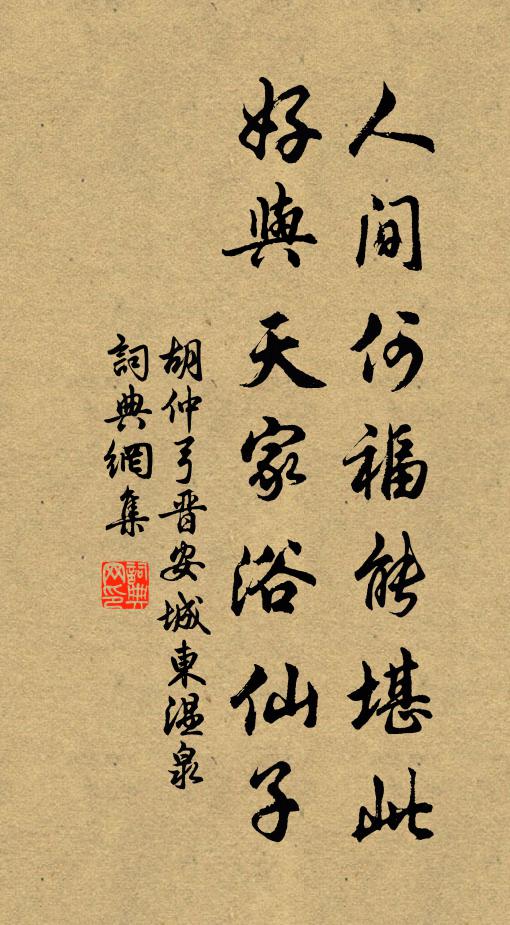 人間何福能堪此
好與天家浴仙子
胡仲弓晋安城東温泉
詞典網集
詞典网印